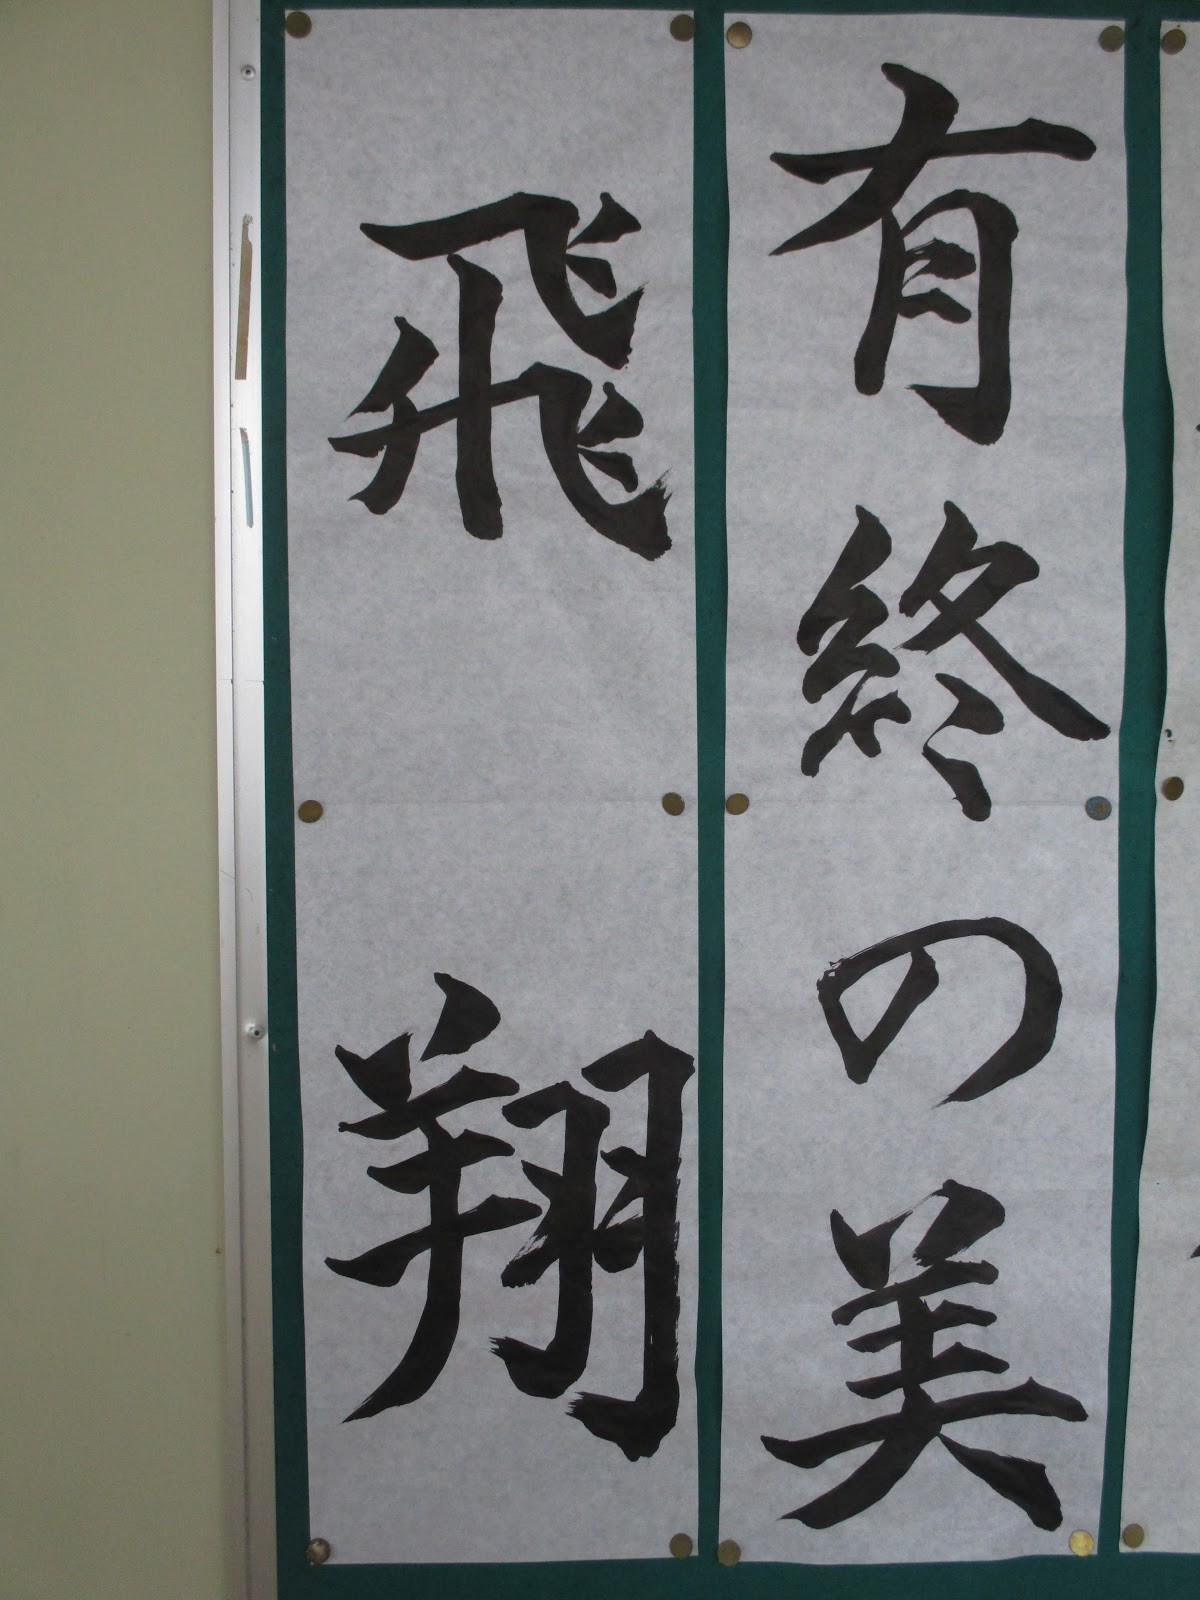 有終の美
飛翔